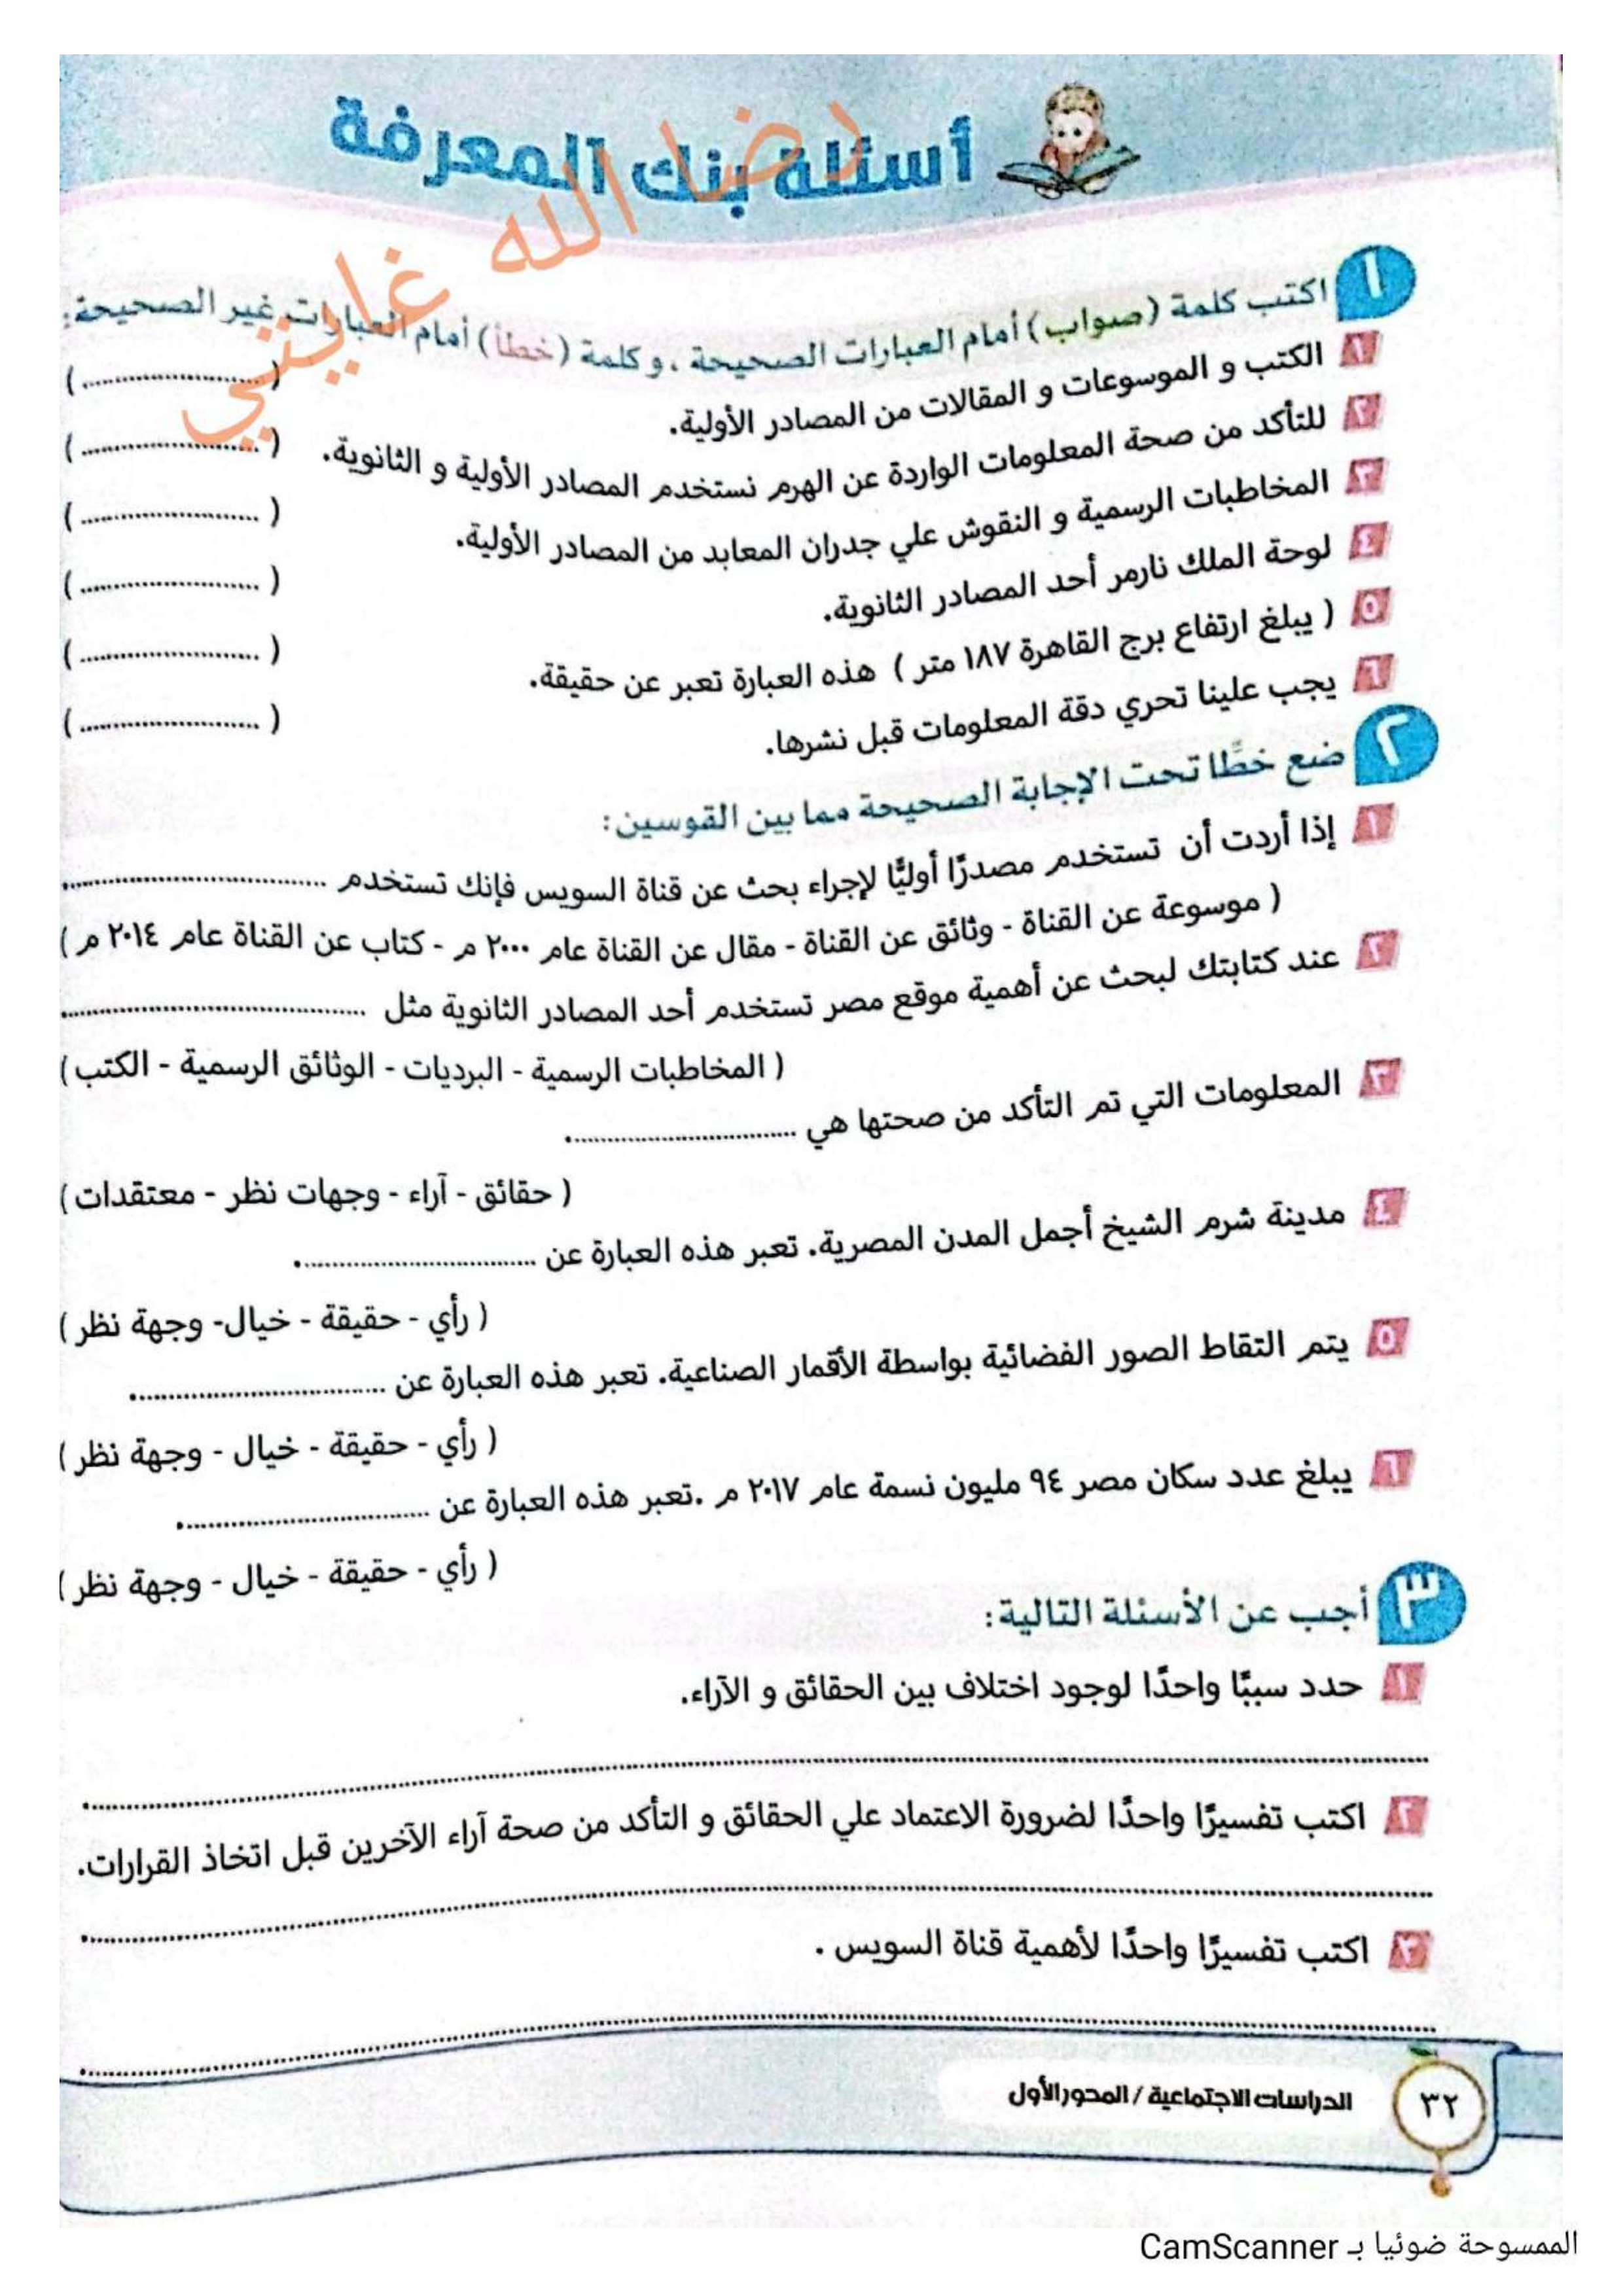 أسئلة بنك المعرفة
رضا الله غايتي
١ اكتب كلمة (صواب) أمام العبارات الصحيحة ، و كلمة (خطأ) أمام العبارات غير الصحيحة:
١ الكتب و الموسوعات و المقالات من المصادر الأولية. (..........................)
٢ للتأكد من صحة المعلومات الواردة عن الهرم نستخدم المصادر الأولية و الثانوية. (..........................)
٣ المخاطبات الرسمية و النقوش علي جدران المعابد من المصادر الأولية. (..........................)
٤ لوحة الملك نارمر أحد المصادر الثانوية. (..........................)
٥ ( يبلغ ارتفاع برج القاهرة ١٨٧ متر ) هذه العبارة تعبر عن حقيقة. (..........................)
٦ يجب علينا تحري دقة المعلومات قبل نشرها. (..........................)
٢ ضع خطًّا تحت الإجابة الصحيحة مما بين القوسين:
١ إذا أردت أن تستخدم مصدرًا أوليًّا لإجراء بحث عن قناة السويس فإنك تستخدم ..........................
( موسوعة عن القناة - وثائق عن القناة - مقال عن القناة عام ٢٠٠٠ م - كتاب عن القناة عام ٢٠١٤ م )
٢ عند كتابتك لبحث عن أهمية موقع مصر تستخدم أحد المصادر الثانوية مثل ..........................
( المخاطبات الرسمية - البرديات - الوثائق الرسمية - الكتب )
٣ المعلومات التي تم التأكد من صحتها هي ..........................
( حقائق - آراء - وجهات نظر - معتقدات )
٤ مدينة شرم الشيخ أجمل المدن المصرية. تعبر هذه العبارة عن ..........................
( رأي - حقيقة - خيال- وجهة نظر )
٥ يتم التقاط الصور الفضائية بواسطة الأقمار الصناعية. تعبر هذه العبارة عن ..........................
( رأي - حقيقة - خيال - وجهة نظر )
٦ يبلغ عدد سكان مصر ٩٤ مليون نسمة عام ٢٠١٧ م .تعبر هذه العبارة عن ..........................
( رأي - حقيقة - خيال - وجهة نظر )
٣ أجب عن الأسئلة التالية:
١ حدد سببًا واحدًا لوجود اختلاف بين الحقائق و الآراء.
..........................
٢ اكتب تفسيرًا واحدًا لضرورة الاعتماد علي الحقائق و التأكد من صحة آراء الآخرين قبل اتخاذ القرارات.
..........................
٣ اكتب تفسيرًا واحدًا لأهمية قناة السويس .
..........................
٣٢ الدراسات الاجتماعية / المحور الأول
الممسوحة ضوئيا بـ CamScanner